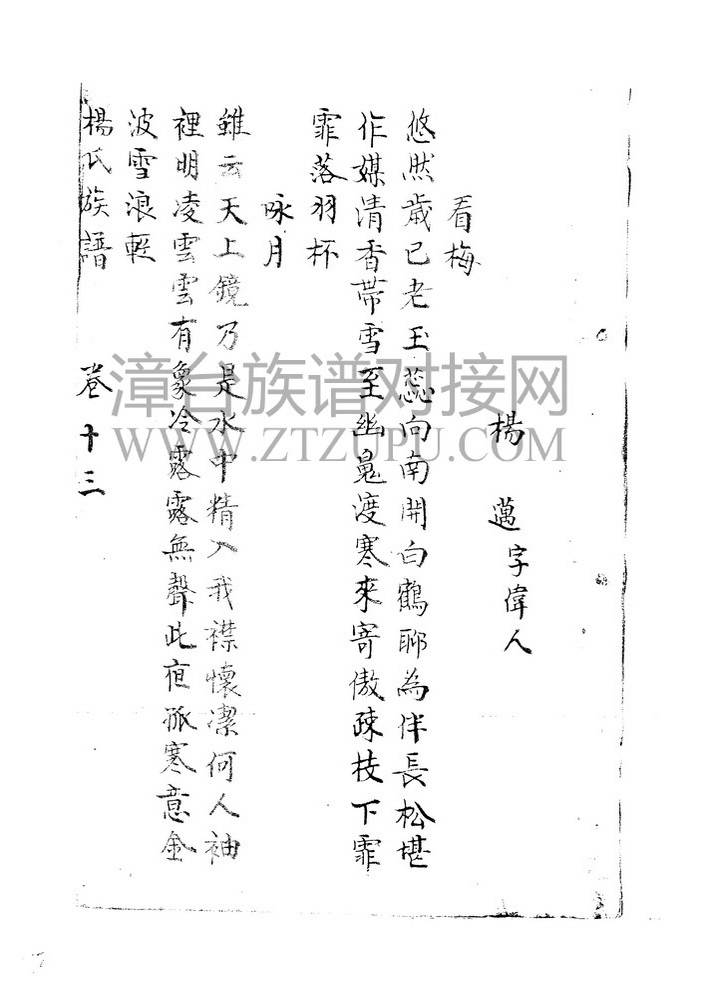 楊 邁字偉人
看梅
悠然歲已老玉蕊向南開白鶴聊為伴長松堪
作媒清香帶雪至幽鬼渡寒來寄傲疎枝下霏
霏落羽杯
咏月
雖云天上鏡乃是水中精入我襟懷潔何人袖
裡明凌雲雲有象冷露露無聲此夜孤寒意金
波雪浪輕
楊氏族譜 卷十三
漳台族谱对接网
WWW.ZTZUPU.COM